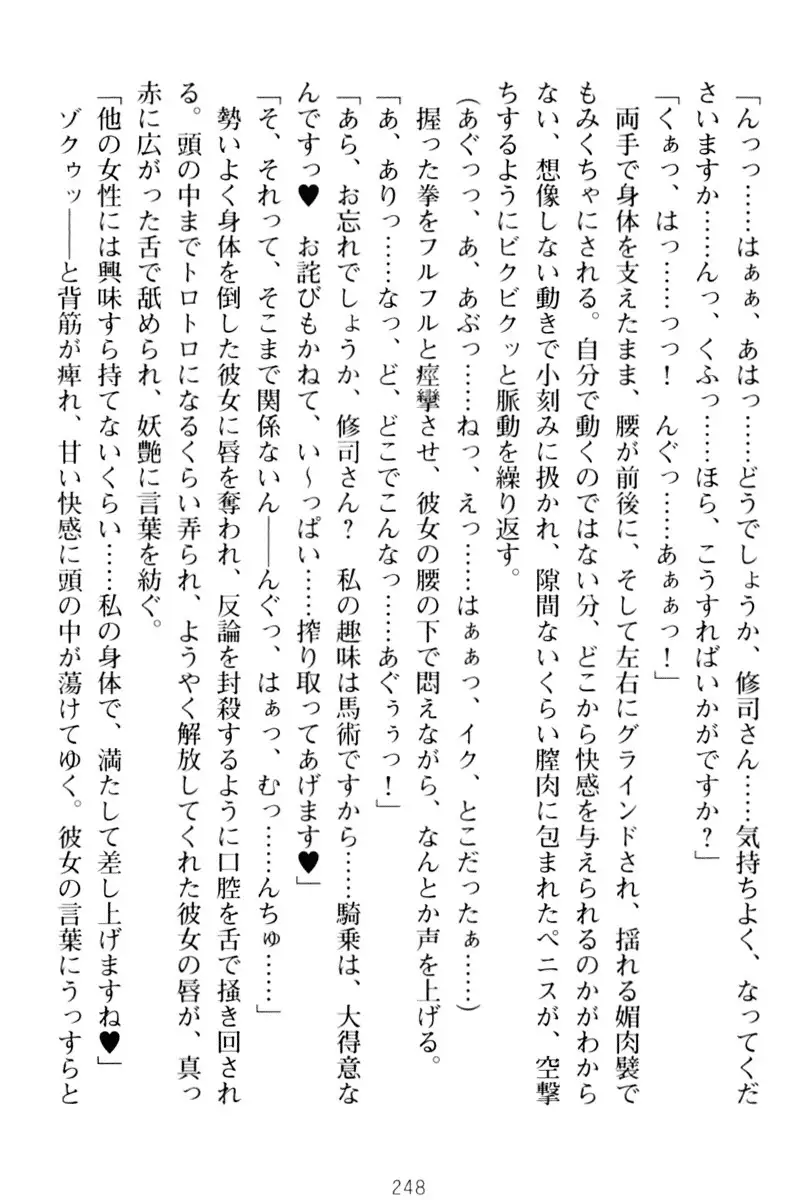 「んっっ……はぁぁ、あはっ……どうでしょうか、修司さん……気持ちよく、なってくだ
さいますか……んっ、くふっ……ほら、こうすればいかがですか？」
「くぁっ、はっ……っっ！　んぐっ……あぁぁっ！」
　両手で身体を支えたまま、腰が前後に、そして左右にグラインドされ、揺れる媚肉襞で
もみくちゃにされる。自分で動くのではない分、どこから快感を与えられるのかがわから
ない、想像しない動きで小刻みに扱かれ、隙間ないくらい膣肉に包まれたペニスが、空撃
ちするようにビクビクッと脈動を繰り返す。
（あぐっっ、あ、あぶっ……ねっ、えっ……はぁぁっ、イク、とこだったぁ……）
　握った拳をフルフルと痙攣させ、彼女の腰の下で悶えながら、なんとか声を上げる。
「あ、ありっ……なっ、ど、どこでこんなっ……あぐぅぅっ！」
「あら、お忘れでしょうか、修司さん？　私の趣味は馬術ですから……騎乗は、大得意な
んですっ♥　お詫びもかねて、い～っぱい……搾り取ってあげます♥」
「そ、それって、そこまで関係ないん――んぐっ、はぁっ、むっ……んちゅ……」
　勢いよく身体を倒した彼女に唇を奪われ、反論を封殺するように口腔を舌で掻き回され
る。頭の中までトロトロになるくらい弄られ、ようやく解放してくれた彼女の唇が、真っ
赤に広がった舌で舐められ、妖艶に言葉を紡ぐ。
「他の女性には興味すら持てないくらい……私の身体で、満たして差し上げますね♥」
　ゾクゥッ――と背筋が痺れ、甘い快感に頭の中が蕩けてゆく。彼女の言葉にうっすらと
248